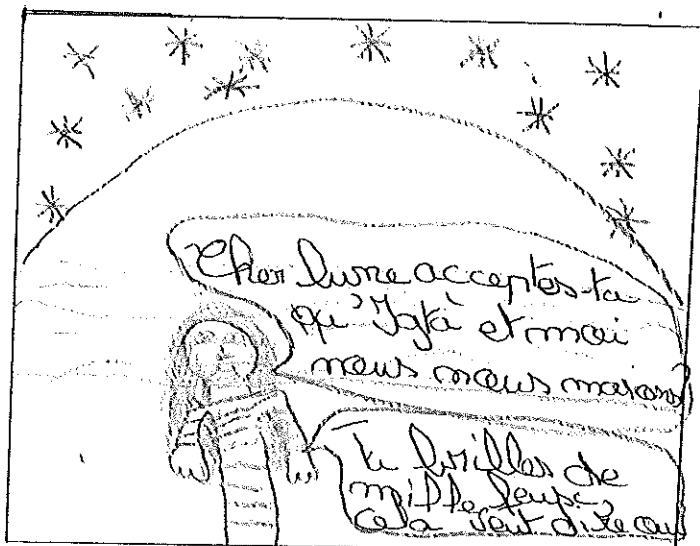 Cher lune acceptes-tu
qu'Igfà et moi
nous nous marions?
Tu brilles de
mille feux,
Cela veut dire oui